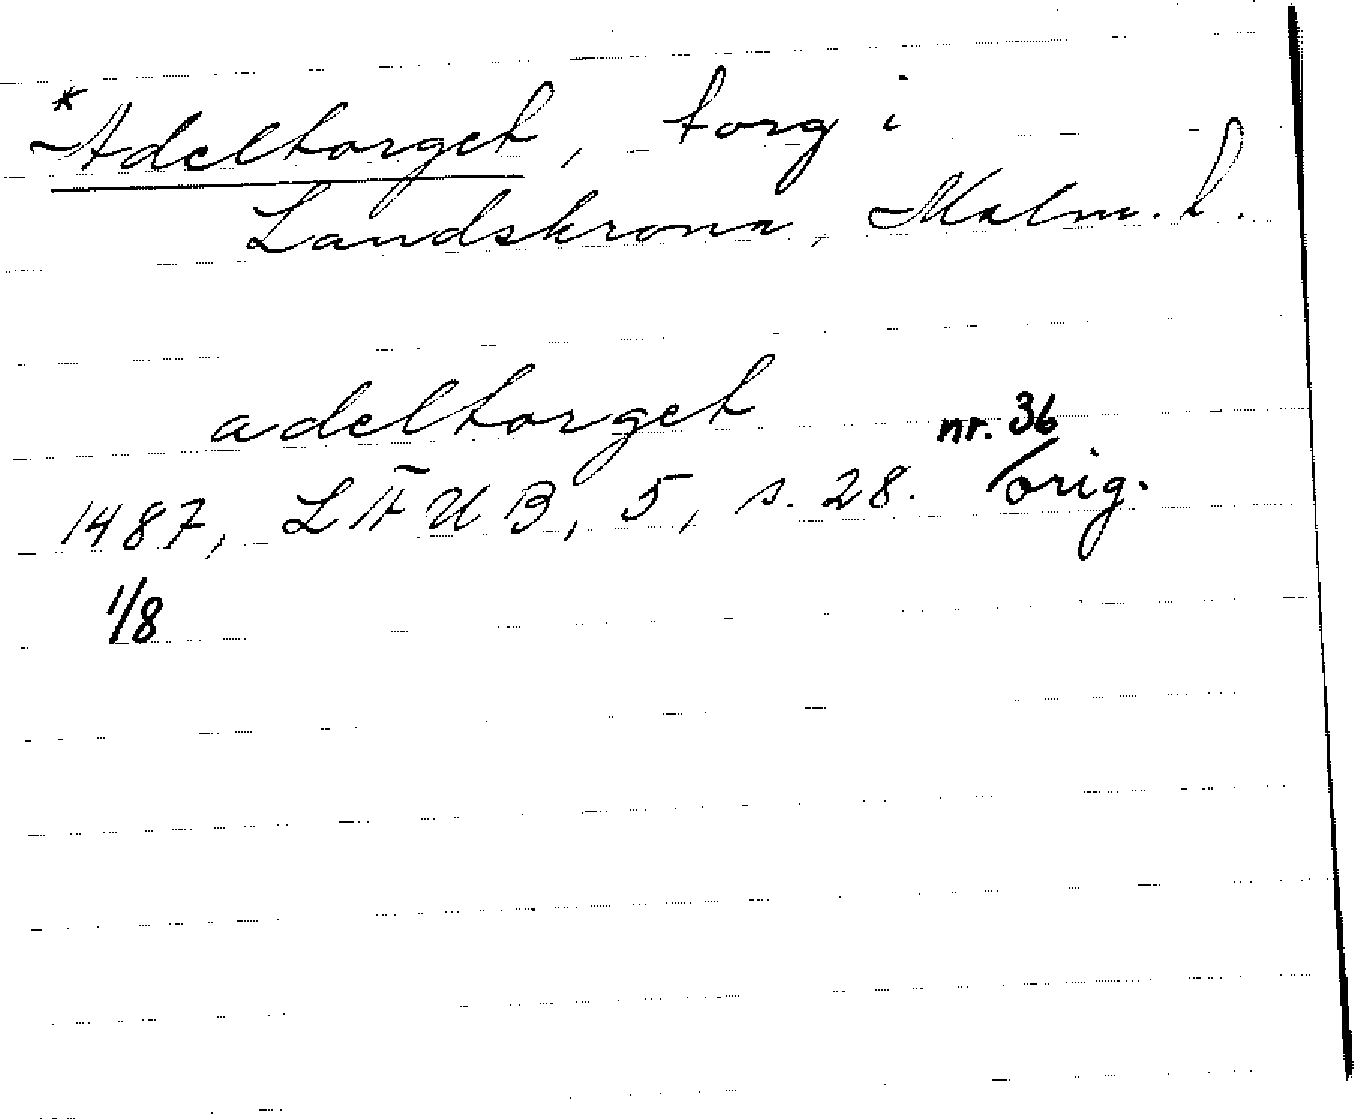 *Adeltorget, torg i
Landskrona, Malm. l.
adeltorget
nr. 36
1487, LÄUB, 5, s. 28. orig.
1/8